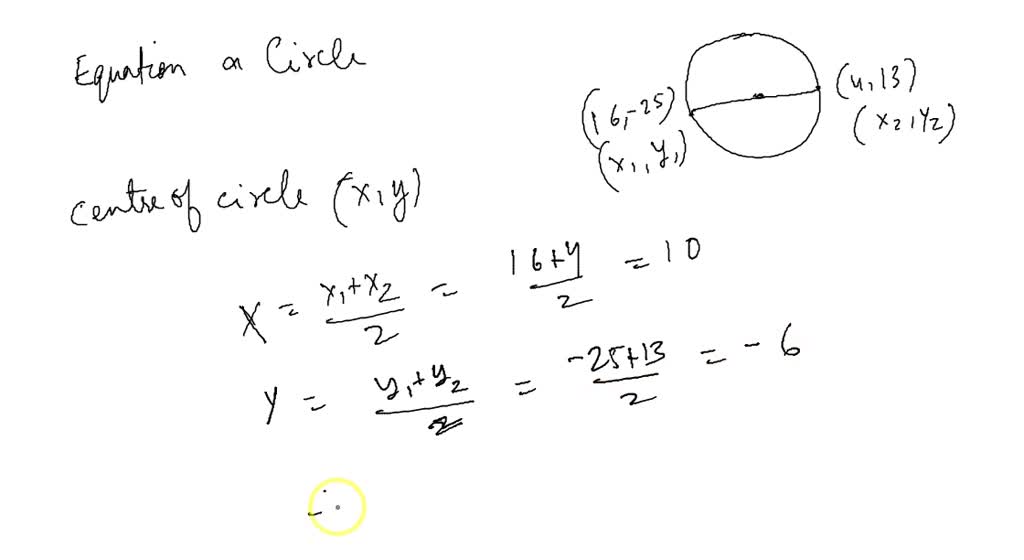 Equation on Circle
(16,-25)
(x₁, y₁)
(4,13)
(x₂, y₂)
centre of circle (x,y)
X = x₁+x₂/2 = 16+4/2 = 10
Y = y₁+y₂/2 = -25+13/2 = -6